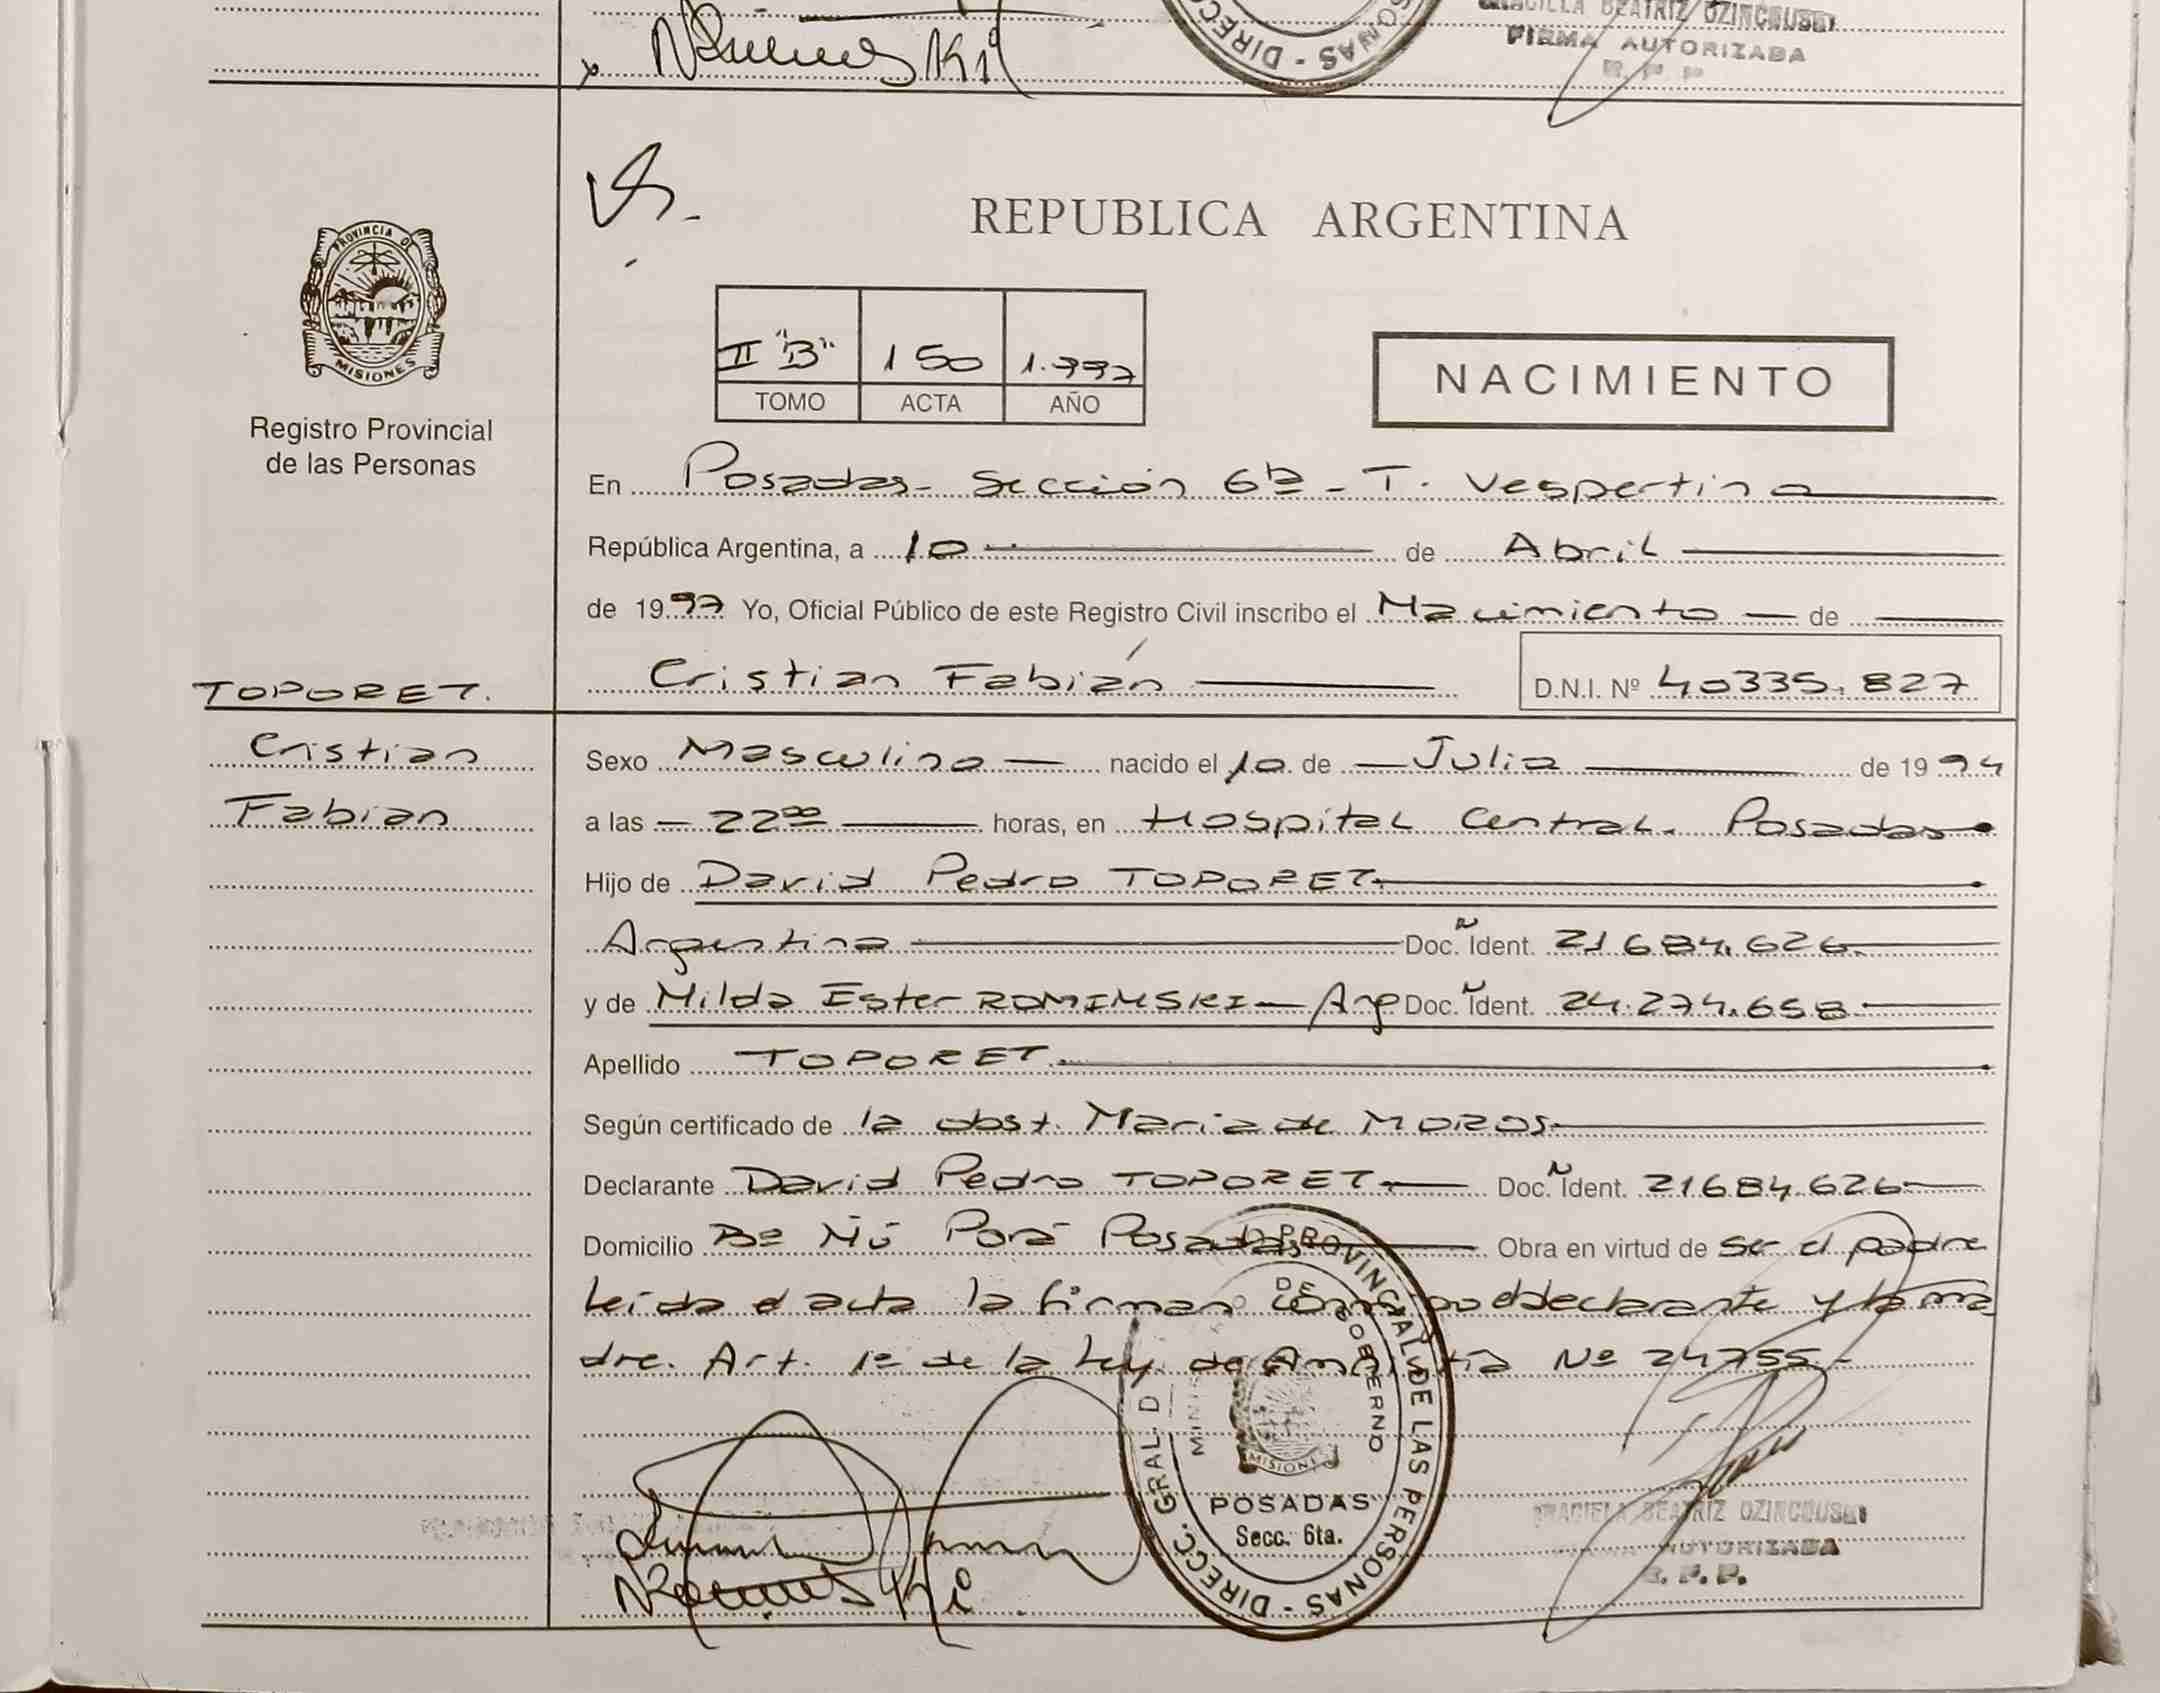 GRACIELA BEATRIZ DZINCOUSKI
FIRMA AUTORIZADA
R. P. P.
DIRECC
SONAS
REPUBLICA ARGENTINA
PROVINCIA DE
MISIONES
Registro Provincial
de las Personas
II "B" 150 1.997
TOMO ACTA AÑO
NACIMIENTO
En Posadas- Sección 6ta - T. Vespertina
República Argentina, a 10 de Abril
de 1997 Yo, Oficial Público de este Registro Civil inscribo el Nacimiento de
Cristian Fabián D.N.I. Nº 40335.827
TOPORET.
Cristian
Fabian
Sexo Masculino nacido el 10 de Julio de 1994
a las 22 00 horas, en Hospital Central. Posadas
Hijo de David Pedro TOPORET
Argentina Doc. Ñ Ident. 21684.626
y de Nilda Ester ROMINSKI - Arg Doc. Ñ Ident. 24.274.658
Apellido TOPORET
Según certificado de la obst. Maria de MOROS
Declarante David Pedro TOPORET Doc. Ñ Ident. 21684.626
Domicilio Bº Ñú Porá Posadas Obra en virtud de ser el padre
Leida el acta la firman conmigo el declarante y la ma
dre. Art. 1º de la Ley de Amnistía Nº 24755.-
DIRECC. GRAL. D PROVINCIAL DE LAS PERSONAS
DE GOBIERNO
MISIONES
POSADAS
Secc. 6ta.
GRACIELA BEATRIZ DZINCOUSKI
AUTORIZADA
R. P. P.